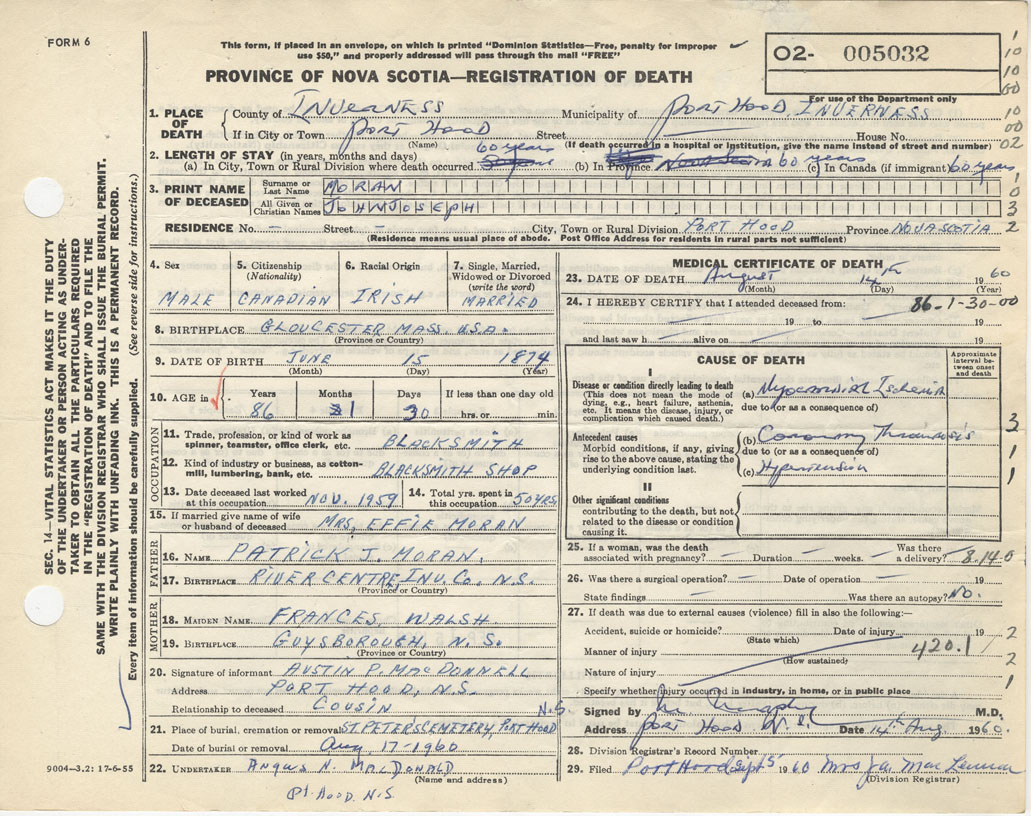 FORM 6
This form, if placed in an envelope, on which is printed "Dominion Statistics—Free, penalty for improper
use $50," and properly addressed will pass through the mail "FREE"
PROVINCE OF NOVA SCOTIA—REGISTRATION OF DEATH
O2- 005032
For use of the Department only
1. PLACE OF DEATH
County of INVERNESS Municipality of PORT HOOD, INVERNESS
If in City or Town PORT HOOD Street House No.
(Name) (If death occurred in a hospital or institution, give the name instead of street and number)
2. LENGTH OF STAY (in years, months and days)
(a) In City, Town or Rural Division where death occurred 60 years (b) In Province 60 years (c) In Canada (if immigrant) 60 years
3. PRINT NAME OF DECEASED
Surname or Last Name MORAN
All Given or Christian Names JOHN JOSEPH
RESIDENCE No. — Street — City, Town or Rural Division PORT HOOD Province NOVA SCOTIA
(Residence means usual place of abode. Post Office Address for residents in rural parts not sufficient)
4. Sex
MALE
5. Citizenship (Nationality)
CANADIAN
6. Racial Origin
IRISH
7. Single, Married, Widowed or Divorced (write the word)
MARRIED
8. BIRTHPLACE GLOUCESTER MASS. U.S.A.
(Province or Country)
9. DATE OF BIRTH JUNE 15 1874
(Month) (Day) (Year)
10. AGE in Years Months Days If less than one day old
86 1 30 hrs. or min.
OCCUPATION
11. Trade, profession, or kind of work as spinner, teamster, office clerk, etc. BLACKSMITH
12. Kind of industry or business, as cotton-mill, lumbering, bank, etc. BLACKSMITH SHOP
13. Date deceased last worked at this occupation NOV. 1959 14. Total yrs. spent in this occupation 50 YRS.
15. If married give name of wife or husband of deceased MRS. EFFIE MORAN
FATHER
16. NAME PATRICK J. MORAN.
17. BIRTHPLACE RIVER CENTRE, INV. CO. N.S.
(Province or Country)
MOTHER
18. MAIDEN NAME FRANCES WALSH
19. BIRTHPLACE GUYSBOROUGH, N.S.
(Province or Country)
20. Signature of informant AUSTIN P. MACDONNELL
Address PORT HOOD, N.S.
Relationship to deceased COUSIN
21. Place of burial, cremation or removal ST. PETERS CEMETERY, PORT HOOD N.S
Date of burial or removal Aug. 17-1960
22. UNDERTAKER ANGUS N. MACDONALD
(Name and address)
Pt. HOOD. N.S
MEDICAL CERTIFICATE OF DEATH
23. DATE OF DEATH August 14th 1960
(Month) (Day) (Year)
24. I HEREBY CERTIFY that I attended deceased from:
86-1-30-00
19 to 19
and last saw h alive on 19
CAUSE OF DEATH
Approximate interval between onset and death
I
Disease or condition directly leading to death
(This does not mean the mode of dying, e.g., heart failure, asthenia, etc. It means the disease, injury, or complication which caused death.)
(a) Myocardial Ischemia
due to (or as a consequence of)
Antecedent causes
Morbid conditions, if any, giving rise to the above cause, stating the underlying condition last.
(b) Coronary Thrombosis
due to (or as a consequence of)
(c) Hypertension
II
Other significant conditions
contributing to the death, but not related to the disease or condition causing it.
25. If a woman, was the death associated with pregnancy? — Duration — weeks. Was there a delivery?
8.14.0
26. Was there a surgical operation? — Date of operation — 19
State findings Was there an autopsy? No.
27. If death was due to external causes (violence) fill in also the following:—
Accident, suicide or homicide? Date of injury 19
(State which)
Manner of injury
420.1
(How sustained)
Nature of injury
Specify whether injury occurred in industry, in home, or in public place
Signed by M.D.
Address PORT HOOD N.S. Date 14th Aug. 1960.
28. Division Registrar's Record Number
29. Filed Port Hood Sept 5 1960 Mrs J.A. MacLennan
(Division Registrar)
SEC. 14—VITAL STATISTICS ACT MAKES IT THE DUTY
OF THE UNDERTAKER OR PERSON ACTING AS UNDER-
TAKER TO OBTAIN ALL THE PARTICULARS REQUIRED
IN THE "REGISTRATION OF DEATH" AND TO FILE THE
SAME WITH THE DIVISION REGISTRAR WHO SHALL ISSUE THE BURIAL PERMIT.
WRITE PLAINLY WITH UNFADING INK. THIS IS A PERMANENT RECORD.
Every item of information should be carefully supplied. (See reverse side for instructions.)
9004—3.2: 17-6-55
1
10
10
60
10
00
02
1
0
3
2
3
1
1
2
2
1